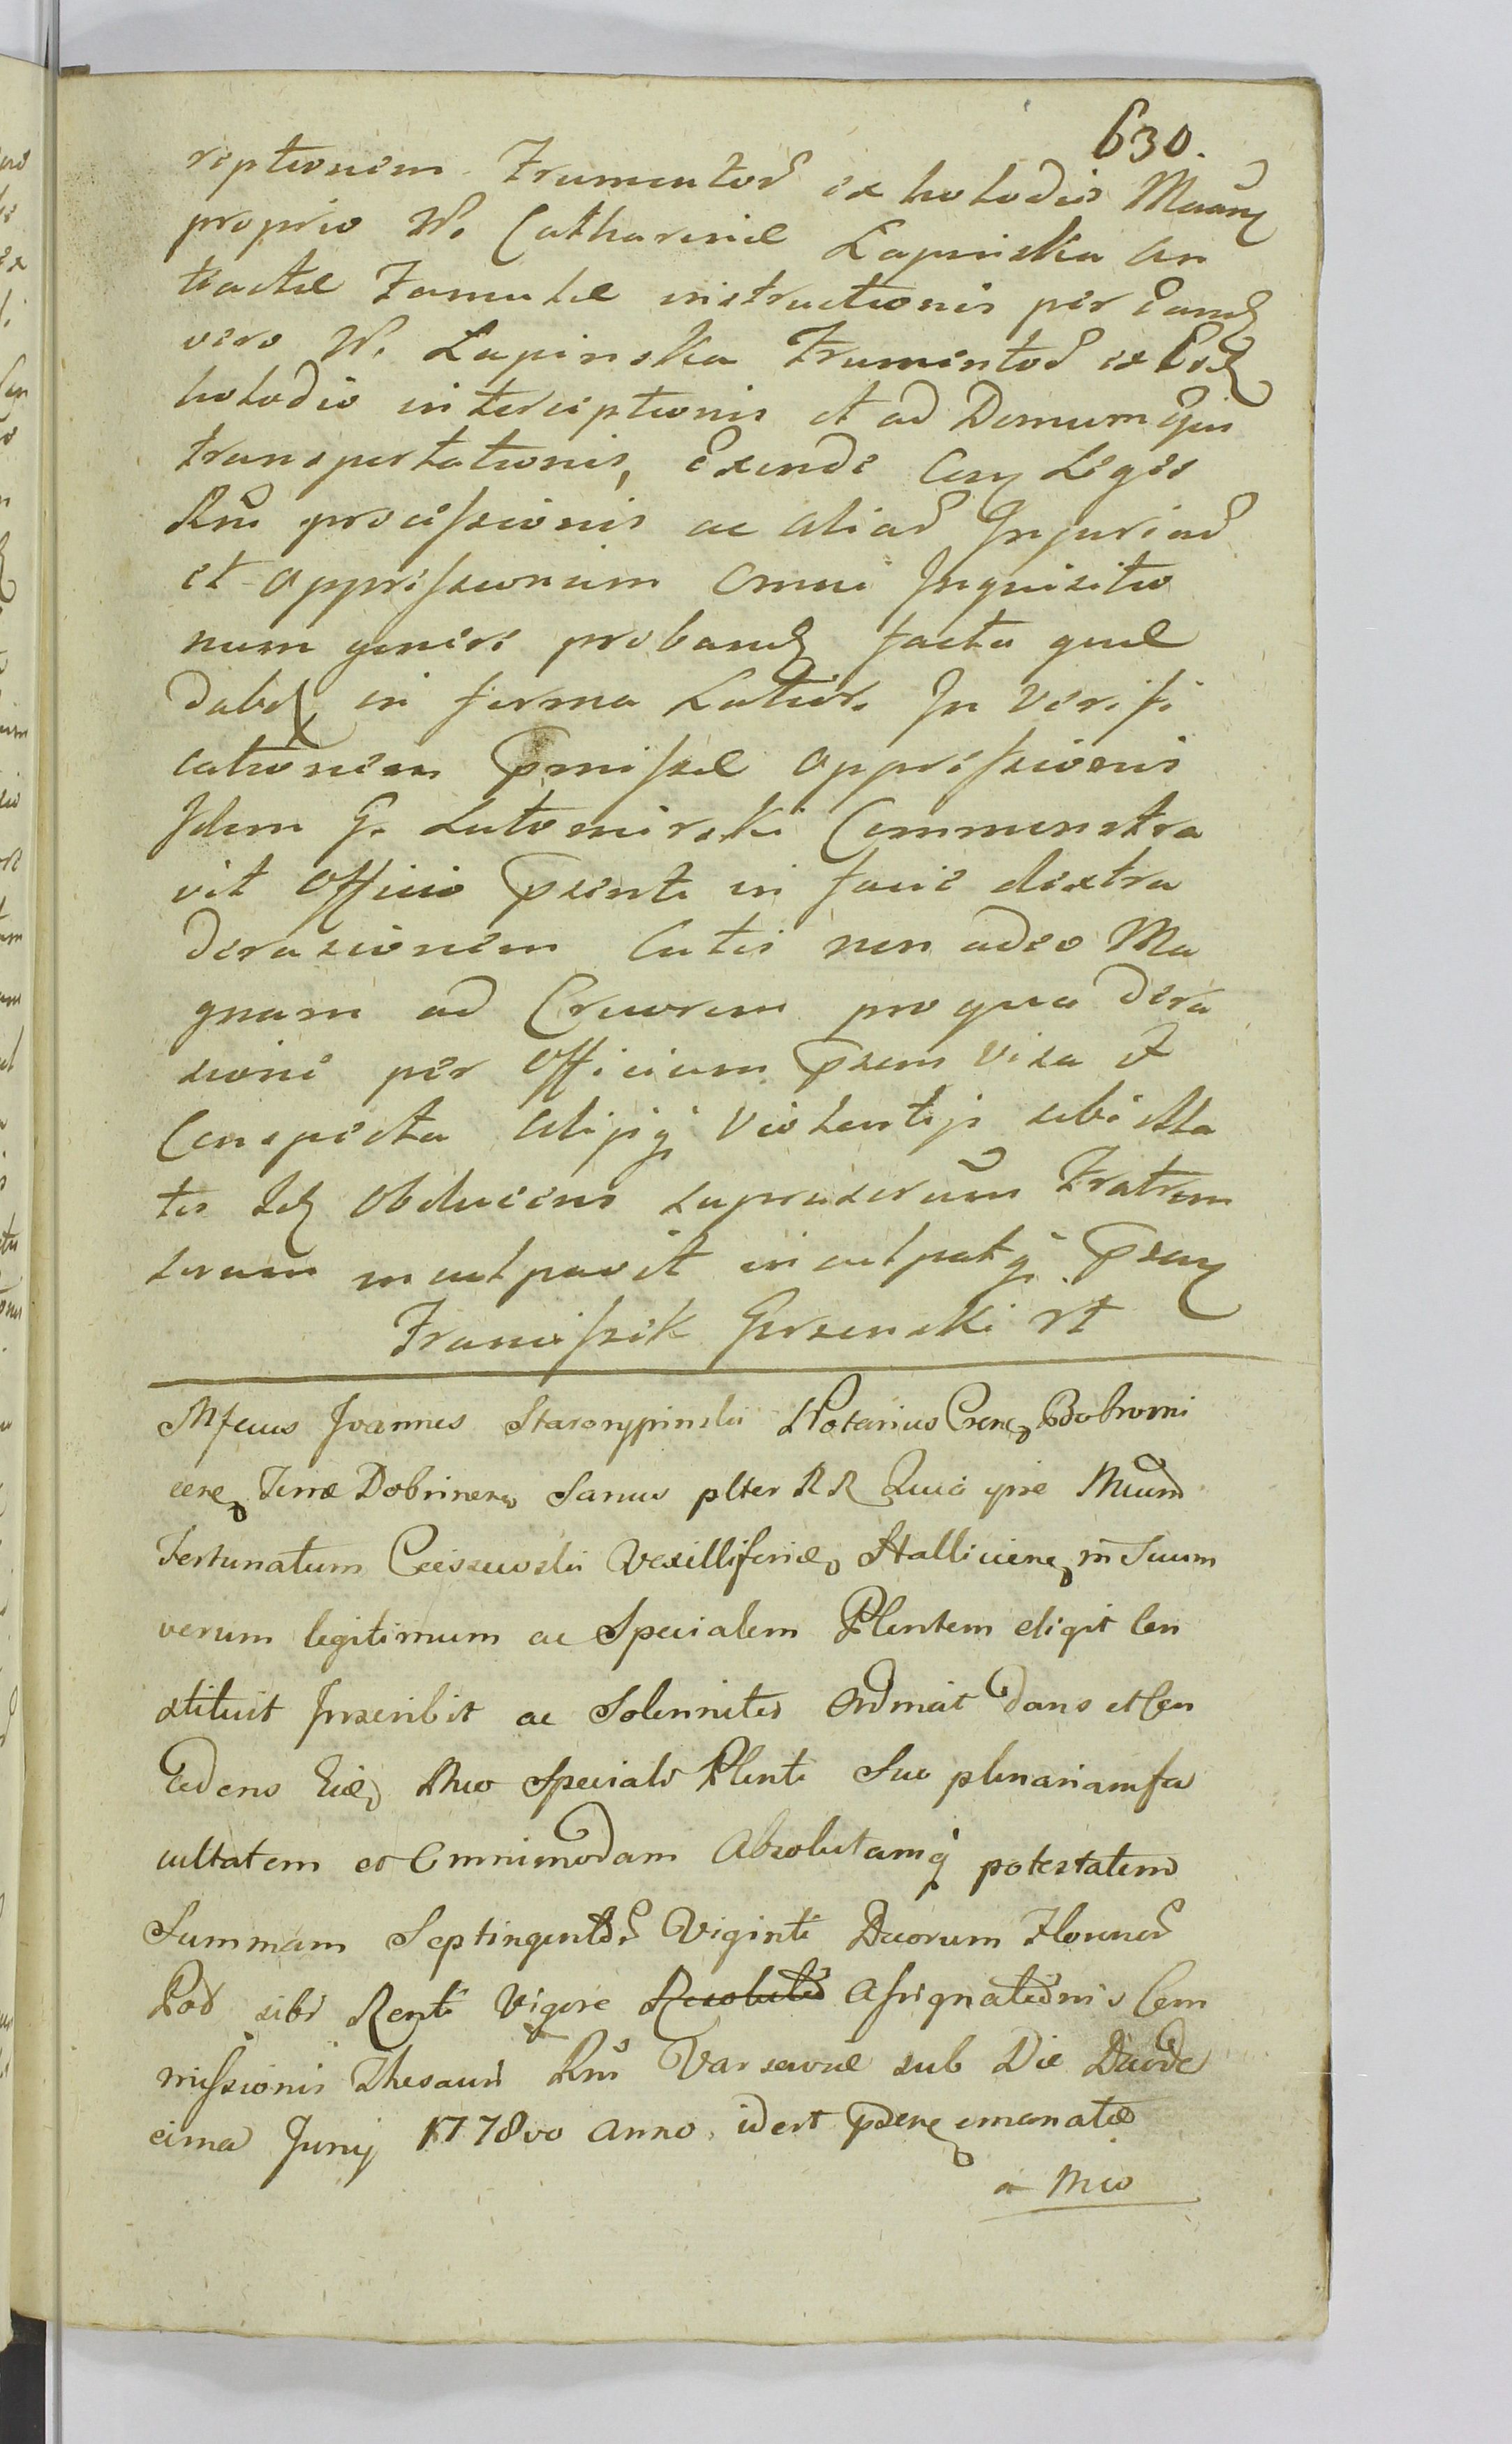 630.
reptionem Frumentor ex hotodis Manu
proprio W. Catharinæ Lapinska an
tiactæ Famulæ instructionis per Eand
vero W. Lapinska Frumentor ex Eod
hotodio interceptionis et ad Domum Ejus
transportationis, Exinde Con Leges
Rni processionis ac aliar Injuriar
et oppressionum omni Inquisitio
num genere proband facta quæ
dabit in forma Latior. In Verifi
cationem pmissæ oppressionis
Idem G. Lutomirski Commonstra
vit Officio psenti in facie dextra
derasionem Cutis non adeo Ma
gnam ad Cruorem pro qua dera
sione per Officium psens visa et
Conspecta alijsq Violentijs sibi illa
tis Id Obducens suprascrum Fratrem
suum inculpavit inculpatq psen
Franciszek Gorzenski rt
Mfcus Joannes Staronypinski Notarius Cren Bobrowni
cen Terræ Dobrinen Sanus plter RR Quia ipse Mcum
Fortunatum Cieszewski Vexilliferid Hallicien in Suum
verum legitimum ac Specialem Plentem eligit Con
stituit Inscribit ac Solenniter Ordinat dans et Con
cedens Eid Mco Speciali Plenti Suo plenariam fa
cultatem et Omnimodam Absolutamq potestatem
Summam Septingentor Viginti Duorum Florenor
Pol sibi Renti Vigore Resolutio Assignationis Com
missionis Thesauri Rni Varsaviæ sub Die Duode
cima Junij 1778vo Anno idest psen emanatæ
a Mco